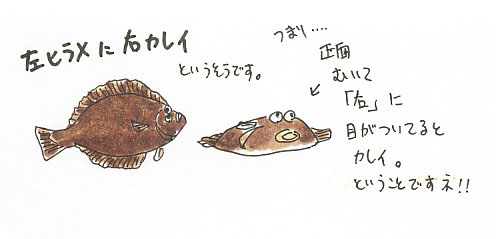 左ヒラメに右カレイ
というそうです。
つまり‥‥
正面
むいて
「右」に
目がついてると
カレイ。
ということですネ!!